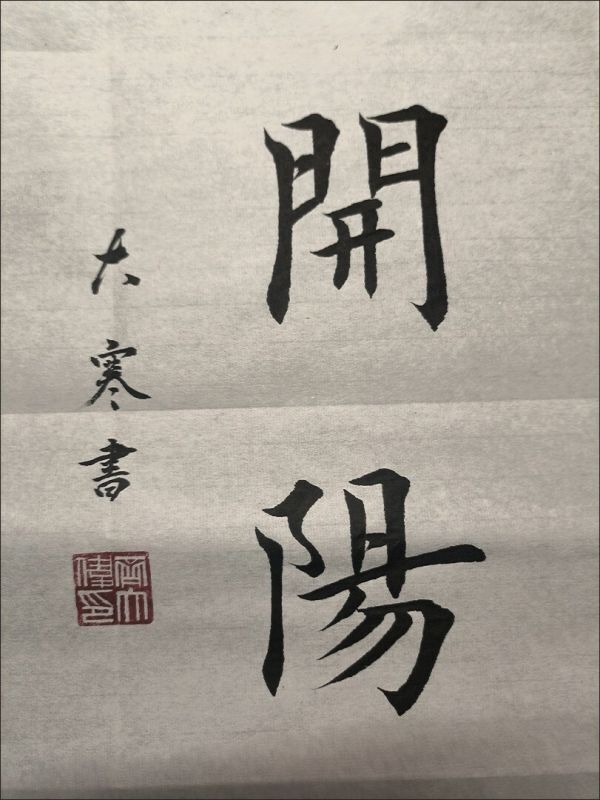 開陽
大寒書